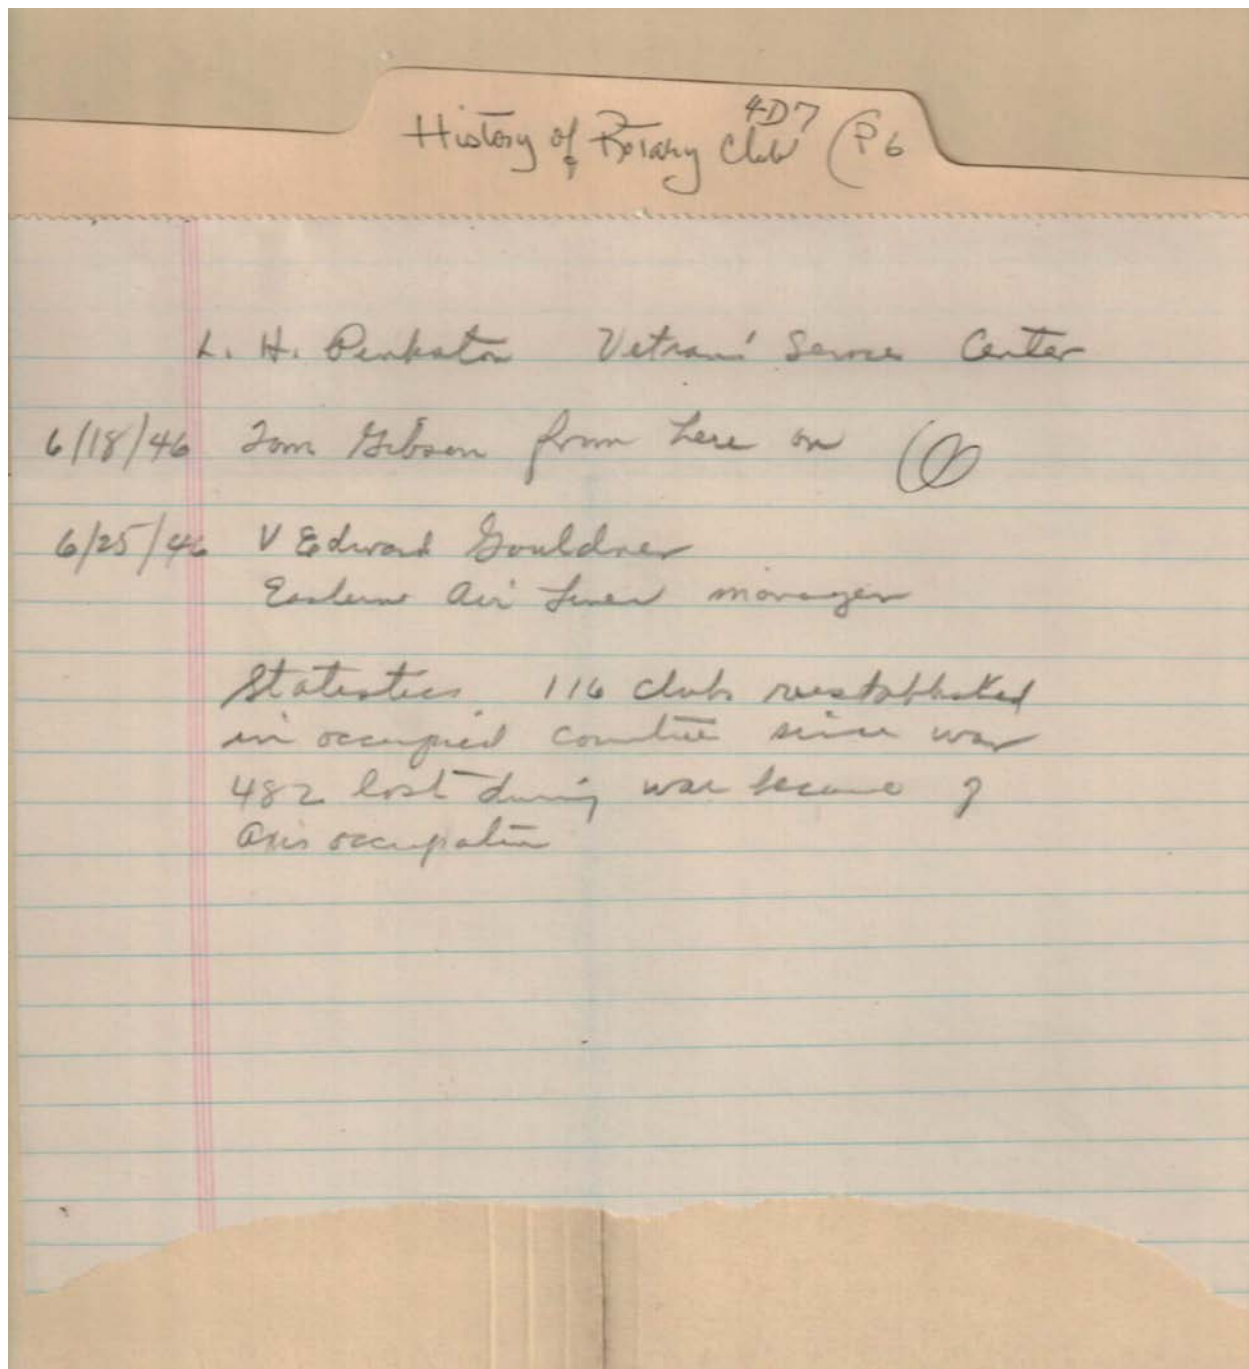 History of Rotary Club 4-D7 (P6
L. H. Pinkston Vetrans' Service Center
6/18/46 Tom Gibson from here on
6/25/46 V Edward Gouldner
Eastern Air Lines manager
Statistics 116 clubs reestablished
in occupied countries since war
482 lost during war because of
Axis occupation